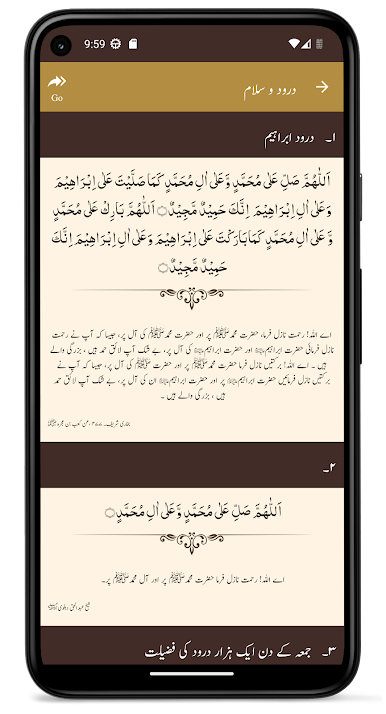 9:59
درود و سلام
Go
۱۔ درود ابراہیم
اَللّٰھُمَّ صَلِّ عَلٰی مُحَمَّدٍ وَّعَلٰی اٰلِ مُحَمَّدٍ کَمَا صَلَّیْتَ عَلٰی اِبْرَاھِیْمَ
وَعَلٰی اٰلِ اِبْرَاھِیْمَ اِنَّکَ حَمِیْدٌ مَّجِیْدٌ۝ اَللّٰھُمَّ بَارِکْ عَلٰی مُحَمَّدٍ
وَّعَلٰی اٰلِ مُحَمَّدٍ کَمَا بَارَکْتَ عَلٰی اِبْرَاھِیْمَ وَعَلٰی اٰلِ اِبْرَاھِیْمَ اِنَّکَ
حَمِیْدٌ مَّجِیْدٌ۝
اے اللہ! رحمت نازل فرما، حضرت محمدﷺ پر اور حضرت محمدﷺ کی آل پر، جیسا کہ آپ نے رحمت
نازل فرمائی حضرت ابراہیمؑ پر اور حضرت ابراہیمؑ کی آل پر، بے شک آپ لائق حمد ہیں، بزرگی والے
ہیں ۔ اے اللہ! برکتیں نازل فرما، حضرت محمدﷺ پر اور حضرت محمدﷺ کی آل پر، جیسا کہ آپ نے
برکتیں نازل فرمائیں حضرت ابراہیمؑ پر اور حضرت ابراہیمؑ ان کی آل پر، بے شک آپ لائق حمد
ہیں ، بزرگی والے ہیں ۔
بخاری شریف۔
۲۔
اَللّٰھُمَّ صَلِّ عَلٰی مُحَمَّدٍ وَّعَلٰی اٰلِ مُحَمَّدٍ۝
اے اللہ! رحمت نازل فرما حضرت محمدﷺ پر اور آل محمدﷺ پر۔
شیخ عبد الحق دہلویؒ
۳۔ جمعہ کے دن ایک ہزار درود کی فضیلت